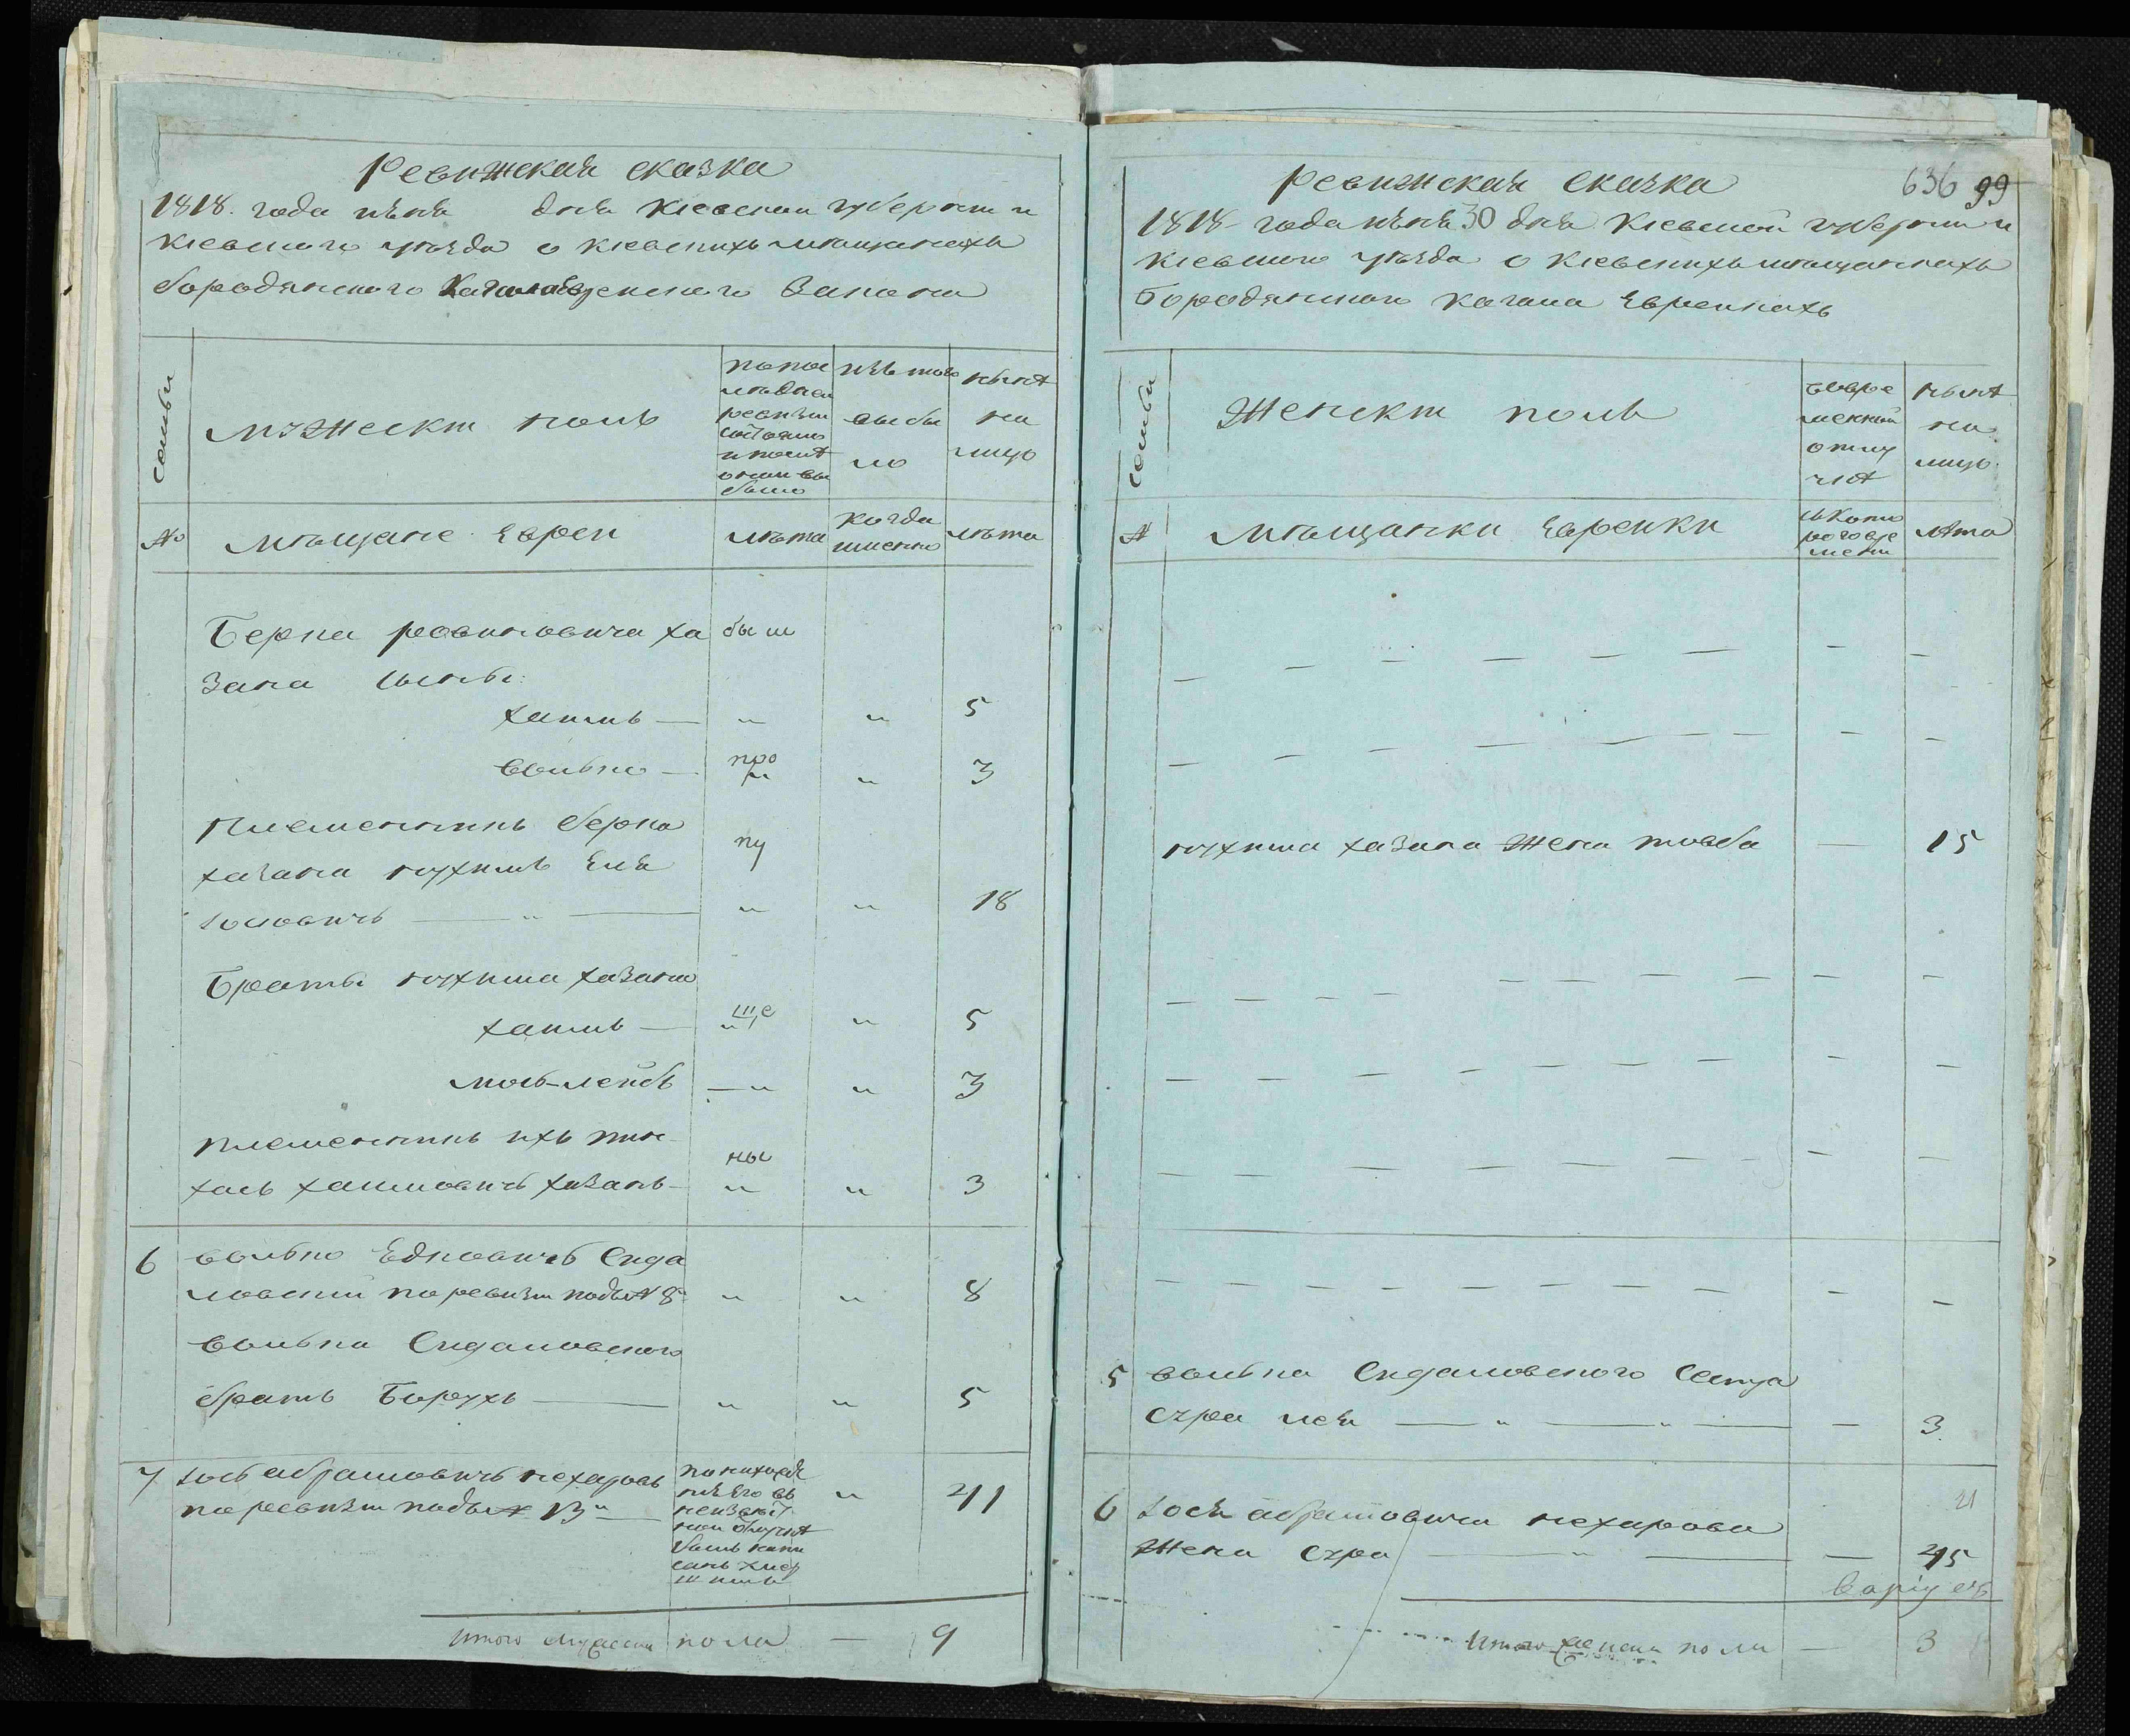 Ревижская сказка
1818. года июня дня Киевской губернии и
Киевского уѣзда о Киевскихъ мѣщанахъ
бородянского Кагала еврейского закона
Семьи
мужеска полъ
по пос
лѣдней
ревизіи
состояло
и послѣ
оной вы
было
изъ того
выбы
ло
нынѣ
на
лицо
№
мѣщане евреи
лѣта
когда
именно
лѣта
Берка ровиновича ха
зана сыны:
хаимъ — " " 5
Волько — " " 3
племянникъ берка
хазана нухимъ Еля
Іосіовичъ — " — " " 18
Браты нухима хазана
хаимъ — " " 5
мось-лейбъ — " " 3
племянникъ ихъ пин-
хась хаимовичъ хазанъ - " " 3
бы ли
про
пу
ще
ны
6 волько Едковичъ Сида
ловский по ревизіи подъ № 8 " " 8
Волька Сидаловского
братъ Борухъ — " " 5
7 Іось абрамовичъ нехаровъ
по ревизіи подъ № 13 " — " 41
по нихожде
нія его въ
неизвѣст
ной отлучкѣ
былъ напи
санъ
Итого мужеска пола — 9
636 99
ревижская сказка
1818 года июня 30 дня Киевской губернии и
Киевского уѣзда о Киевскихъ мѣщанкахъ
Бородянского Кагала Еврейкахъ
Семьи
Женска полъ
во вре
менной
отлу
чкѣ
нынѣ
на
лицо.
№
мѣщанки Еврейки
съ кото
рого вре
мени
лѣта
нухима хазана жена товба — 15
5 волька Сидаловского сестра
Сура лея — " — " — — 3
21
6 Іося абрамовича нехарова
жена Сура — " — — 45
Итого женска пола — 3